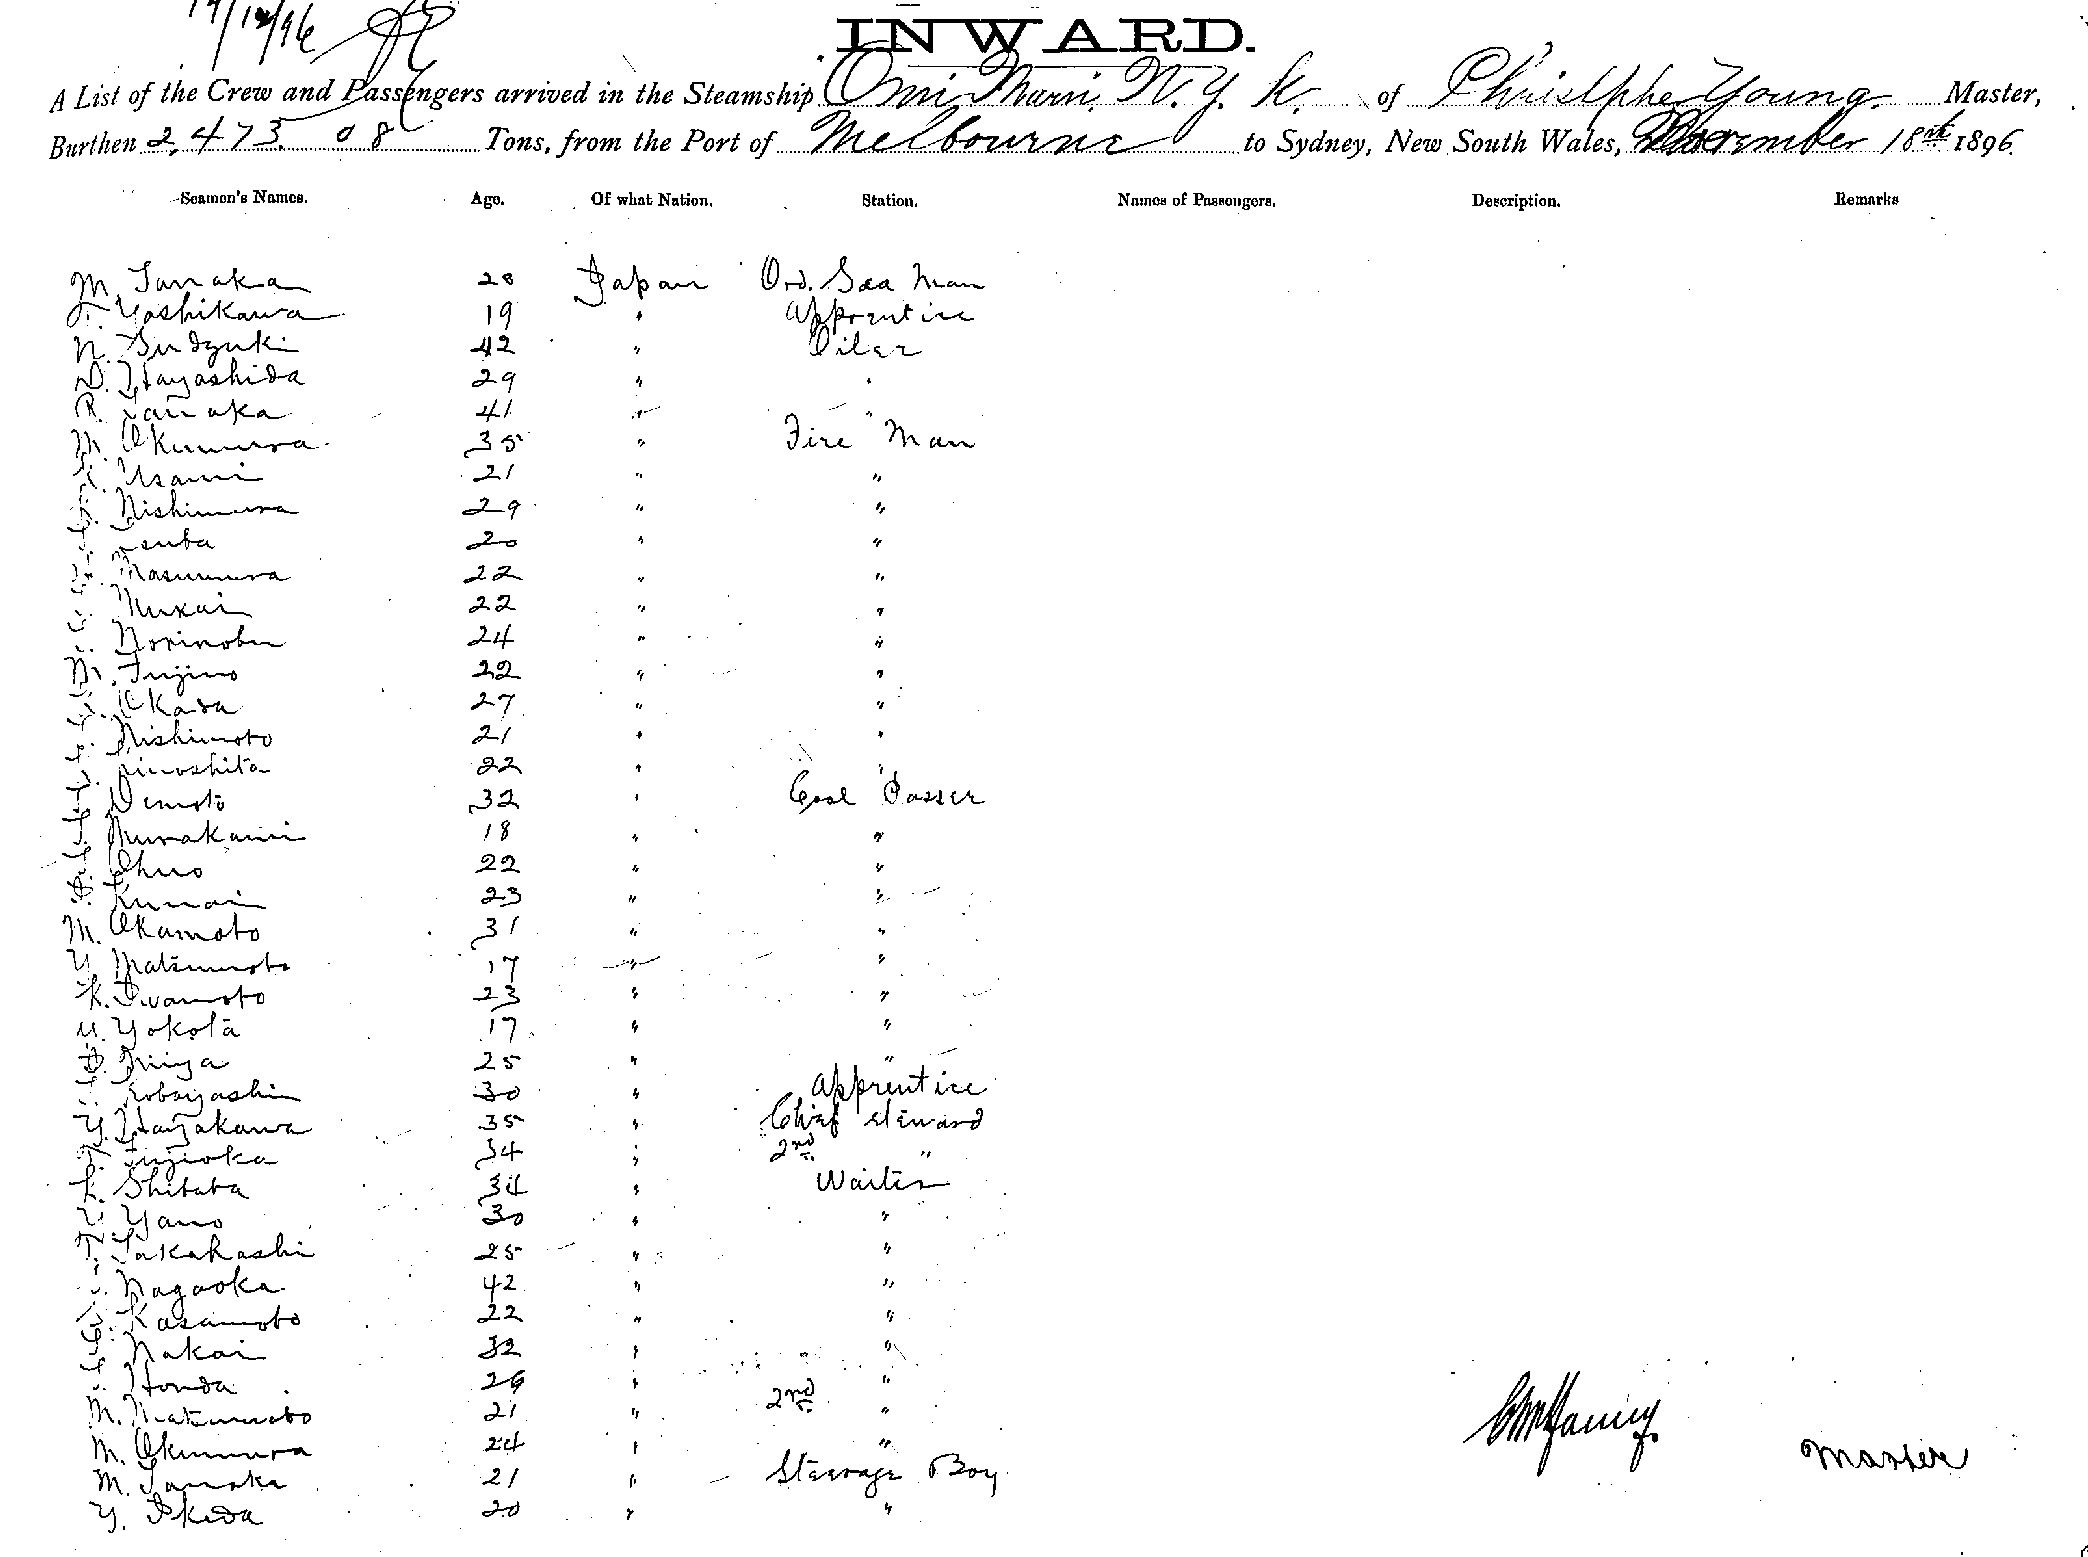 17/12/96
INWARD.
A List of the Crew and Passengers arrived in the Steamship Omi Maru. N. Y. K. of Christphe Young. Master,
Burthen 2,473. 08 Tons, from the Port of Melbourne to Sydney, New South Wales, November 18th 1896.
Seamen's Names. Age. Of what Nation. Station. Names of Passengers. Description. Remarks
M. Tanaka 28 Japan Ord. Sea Man
Yoshikawa 19 " Apprentice
N. Sudzuki 42 " Oiler
D. Hayashida 29 " "
R. Tanaka 41 " "
M. Okumura 35 " Fire Man
Usami 21 " "
Nishimura 29 " "
20 " "
Masumura 22 " "
Mukai 22 " "
Norinobu 24 " "
M. Fujino 22 " "
Okada 27 " "
Nishimoto 21 " "
Kinoshita 22 " "
Demoto 32 " Coal Passer
Murakami 18 " "
Ohno 22 " "
Kunai 23 " "
M. Okamoto 31 " "
Y. Matsumoto 17 " "
K. Iwamoto 23 " "
U. Yokota 17 " "
25 " "
Kobayashi 30 " Apprentice
Y. Hayakawa 35 " Chief Steward
Fujioka 34 " 2nd "
K. Shibata 34 " Waiter
Y. Yano 30 " "
T. Takahashi 25 " "
Nagaoka 42 " "
Kasamoto 22 " "
Nakai 32 " "
Honda 29 " "
M. Matsumoto 21 " 2nd "
M. Okumura 24 " "
M. Tanaka 21 " Steerage Boy
Y. Ikeda 20 " "
Master